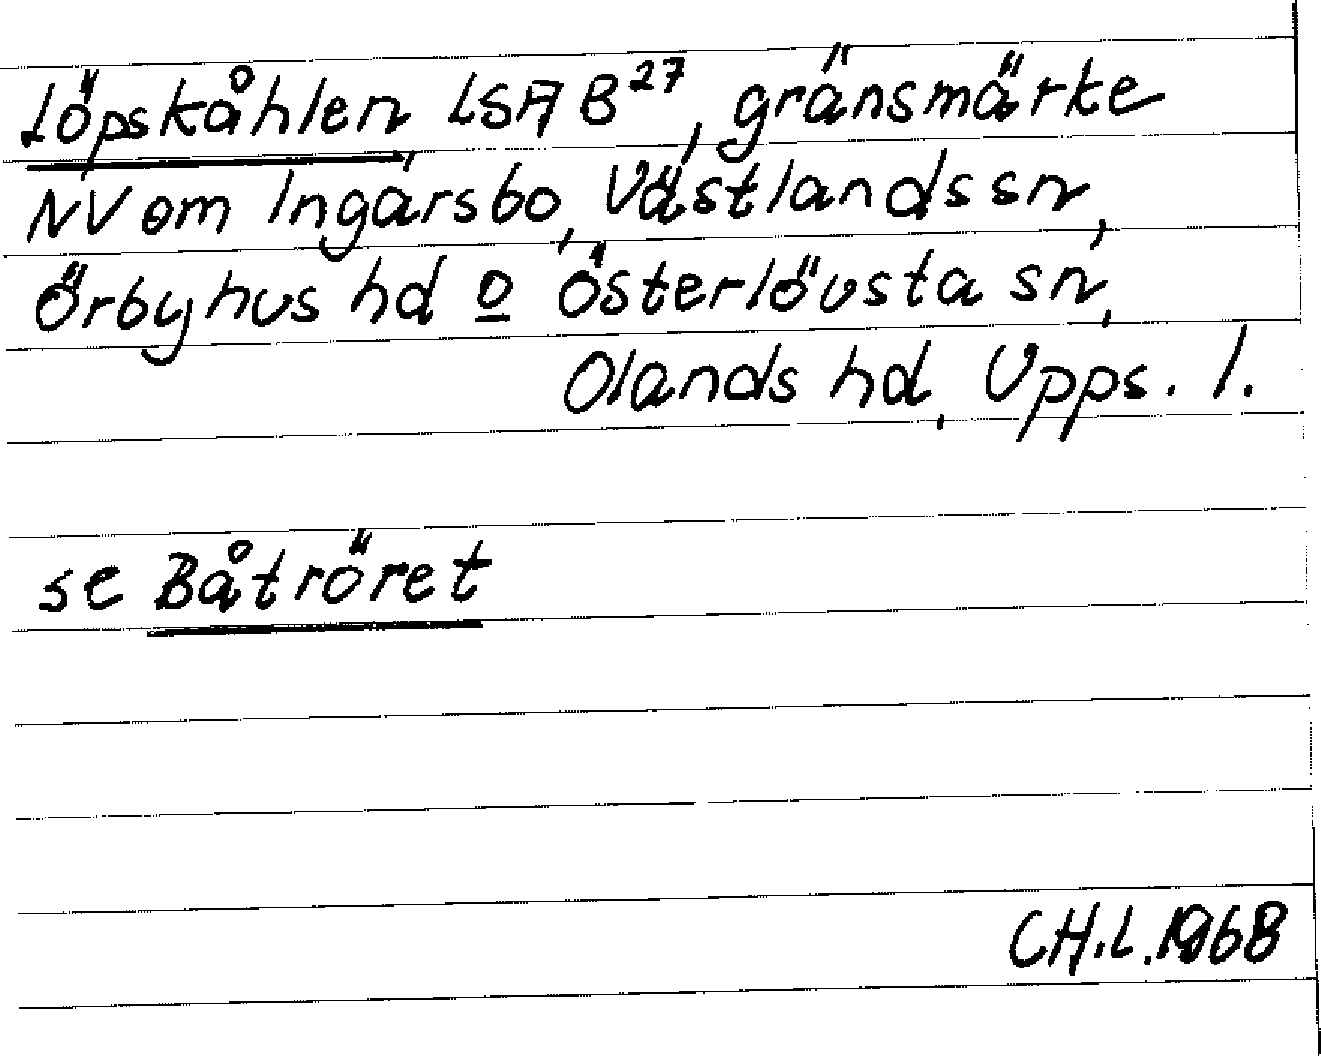 Löpskåhlen LSA B²⁷, gränsmärke
NV om Ingarsbo, Västlands sn,
Örbyhus hd o Österlövsta sn,
Olands hd, Upps. l.
se Båtröret
CH.L. 1968